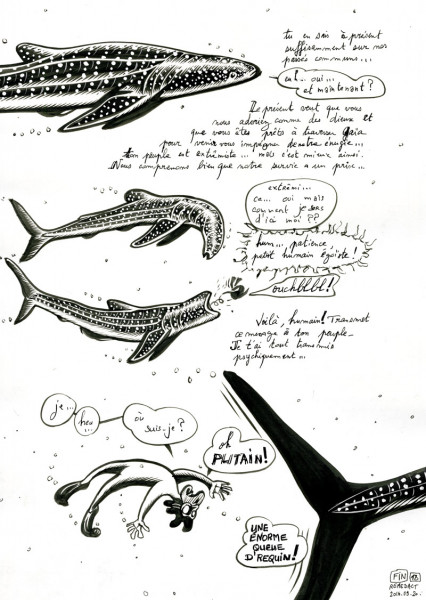 tu en sais à présent
suffisamment sur nos
passés communs...
euh... oui...
et maintenant ?
Le présent veut que vous
nous adoriez comme des dieux et
que vous êtes prêts à traverser gaïa
pour venir vous imprégner de notre énergie...
ton peuple est extrêmiste... mais c'est mieux ainsi.
Nous comprenons bien que notre survie a un prix...
extrêmi...
ça... oui mais
comment je sors
d'ici moi ??
hum... patience,
petit humain égoïste !
ouchbbbl !
Voilà, humain ! Transmet
ce message à ton peuple_
Je t'ai tout transmis
psychiquement...
je...
heu
...
où
suis-je ?
oh
PUTAIN !
UNE
ÉNORME
QUEUE
D'REQUIN !
FIN
ROMEDACT